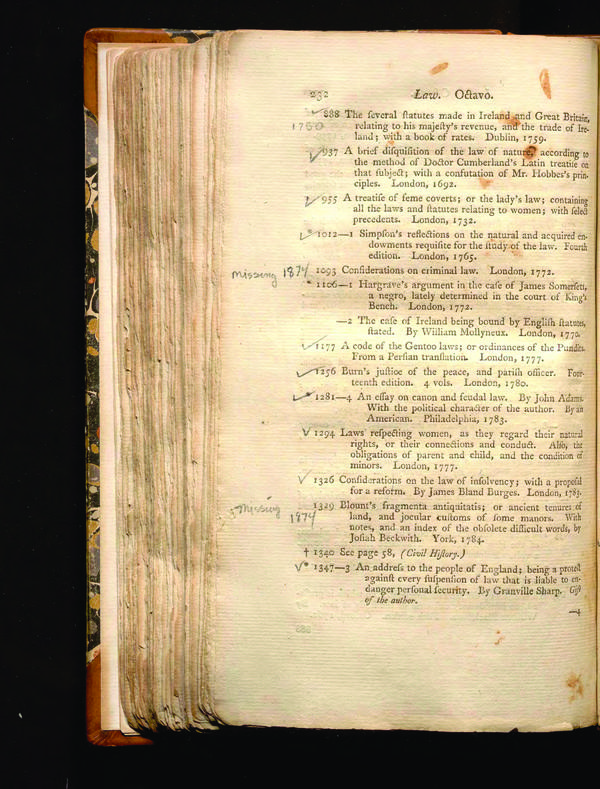 232 Law. Octavo.
888 The ſeveral ſtatutes made in Ireland and Great Britain,
1750 relating to his majeſty's revenue, and the trade of Ire-
land; with a book of rates. Dublin, 1759.
937 A brief diſquiſition of the law of nature, according to
the method of Doctor Cumberland's Latin treatiſe on
that ſubject; with a confutation of Mr. Hobbes's prin-
ciples. London, 1692.
955 A treatiſe of feme coverts; or the lady's law; containing
all the laws and ſtatutes relating to women; with ſelect
precedents. London, 1732.
* 1012—1 Simpſon's reflections on the natural and acquired en-
dowments requiſite for the ſtudy of the law. Fourth
edition. London, 1765.
Missing 1874 1093 Conſiderations on criminal law. London, 1772.
* 1106—1 Hargrave's argument in the caſe of James Somerſett,
a negro, lately determined in the court of King's
Bench. London, 1772.
—2 The caſe of Ireland being bound by Engliſh ſtatutes,
ſtated. By William Mollyneux. London, 1770.
1177 A code of the Gentoo laws; or ordinances of the Pundits.
From a Perſian tranſlation. London, 1777.
1256 Burn's juſtice of the peace, and pariſh officer. Four-
teenth edition. 4 vols. London, 1780.
* 1281—4 An eſſay on canon and feudal law. By John Adams.
With the political character of the author. By an
American. Philadelphia, 1783.
1294 Laws reſpecting women, as they regard their natural
rights, or their connections and conduct. Alſo, the
obligations of parent and child, and the condition of
minors. London, 1777.
1326 Conſiderations on the law of inſolvency; with a propoſal
for a reform. By James Bland Burges. London, 1783.
Missing 1329 Blount's fragmenta antiquitatis; or ancient tenures of
1874 land, and jocular cuſtoms of ſome manors. With
notes, and an index of the obſolete difficult words, by
Joſiah Beckwith. York, 1784.
† 1340 See page 58, (Civil Hiſtory.)
* 1347—3 An addreſs to the people of England; being a proteſt
againſt every ſuſpenſion of law that is liable to en-
danger perſonal ſecurity. By Granville Sharp. Gift
of the author.
—4